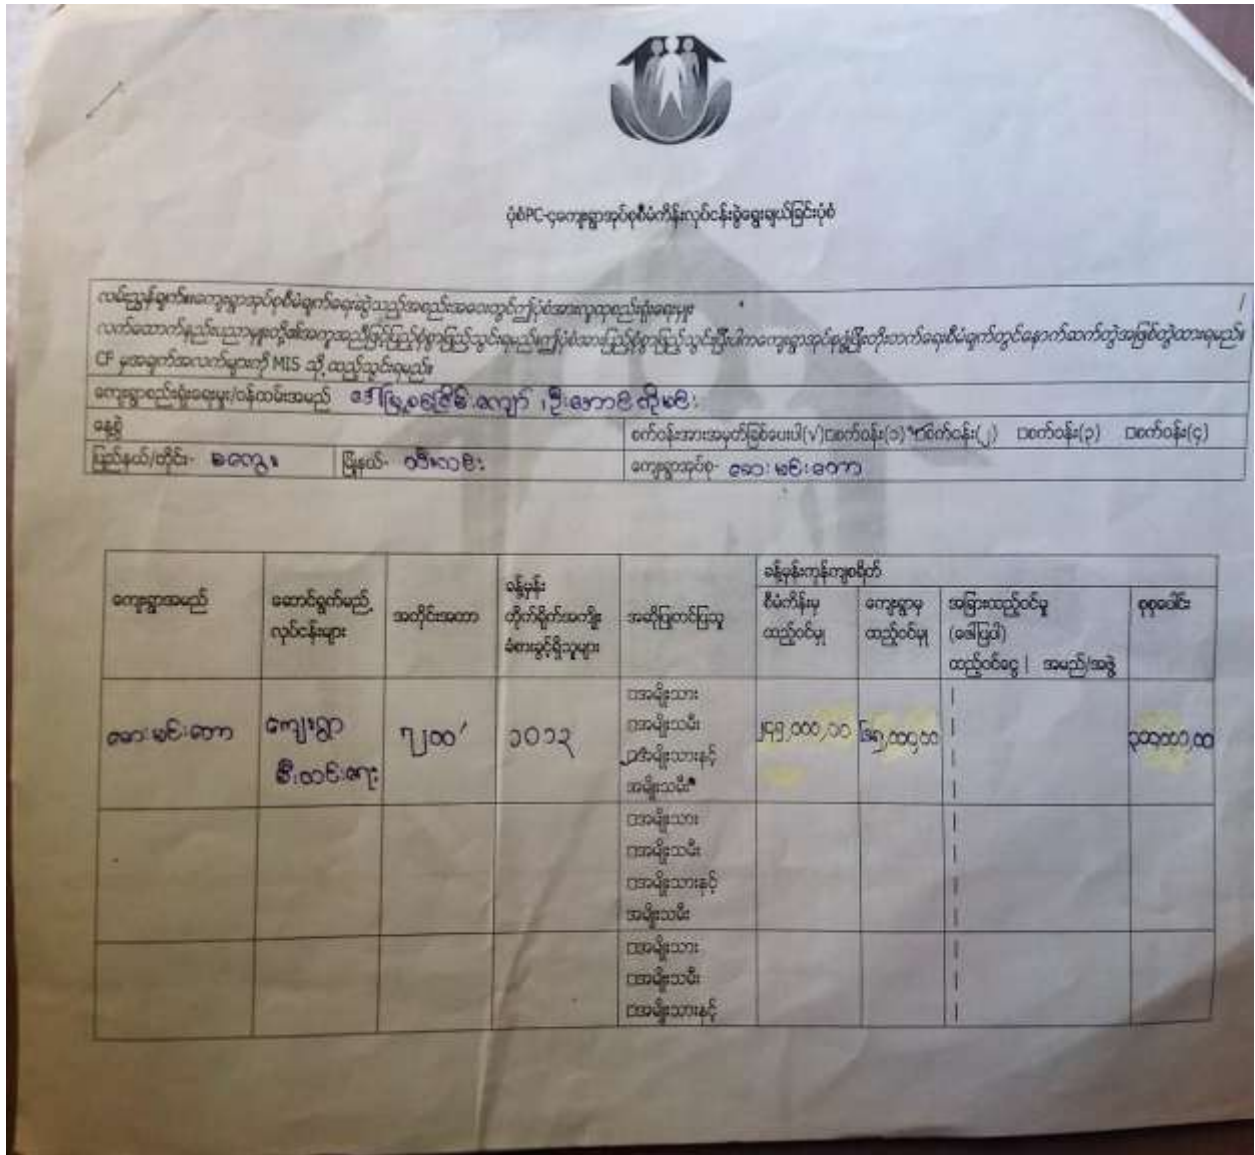 ပုံစံPC-၄ကျေးရွာအုပ်စုစီမံကိန်းလုပ်ငန်းခွဲရွေးချယ်ခြင်းပုံစံ
လမ်းညွှန်ချက်။ကျေးရွာအုပ်စုစီမံချက်ရေးဆွဲသည့်အစည်းအဝေးတွင်ဤပုံစံအားလူထုစည်းရုံးရေးမှူး
လက်ထောက်နည်းပညာမှူးတို့၏အကူအညီဖြင့်ပြည့်စုံစွာဖြည့်သွင်းရမည်။ဤပုံစံအားပြည့်စုံစွာဖြည့်သွင်းပြီးပါကကျေးရွာအုပ်စုဖွံ့ဖြိုးတိုးတက်ရေးစီမံချက်တွင်နောက်ဆက်တွဲအဖြစ်တွဲထားရမည်။
CF မှအချက်အလက်များကို MIS သို့ ထည့်သွင်းရမည်။
ကျေးရွာစည်းရုံးရေးမှူး/ဝန်ထမ်းအမည် ဦးအောင်ကိုမင်း
နေ့စွဲ စက်ဝန်းအားအမှတ်ခြစ်ပေးပါ(√)□စက်ဝန်း(၁) □စက်ဝန်း(၂) □စက်ဝန်း(၃) □စက်ဝန်း(၄)
ပြည်နယ်/တိုင်း- မကွေး မြို့နယ်- ကျေးရွာအုပ်စု-
ကျေးရွာအမည် ဆောင်ရွက်မည့် လုပ်ငန်းများ အတိုင်းအတာ ခန့်မှန်း တိုက်ရိုက်အကျိုး ခံစားခွင့်ရှိသူများ အဆိုပြုတင်ပြသူ ခန့်မှန်းကုန်ကျစရိတ်
စီမံကိန်းမှ ထည့်ဝင်မှု ကျေးရွာမှ ထည့်ဝင်မှု အခြားထည့်ဝင်မှု (ဖော်ပြပါ) ထည့်ဝင်ငွေ | အမည်/အဖွဲ့ စုစုပေါင်း
ကျေးရွာ မီးလင်းရေး ၇၂၀၀' ၁၀၁၃
□အမျိုးသား
□အမျိုးသမီး
□အမျိုးသားနှင့်
အမျိုးသမီး
□အမျိုးသား
□အမျိုးသမီး
□အမျိုးသားနှင့်
အမျိုးသမီး
□အမျိုးသား
□အမျိုးသမီး
□အမျိုးသားနှင့်